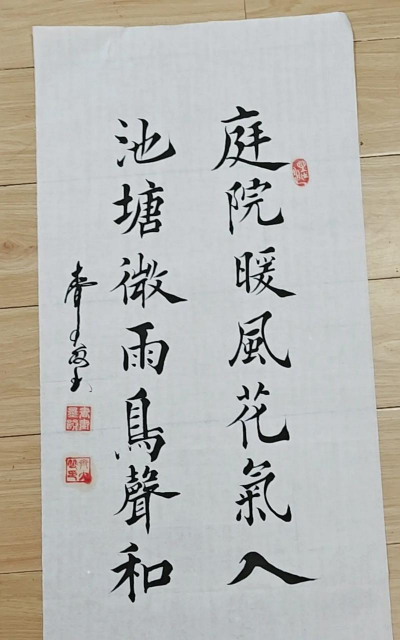 庭院暖風花氣入
池塘微雨鳥聲和